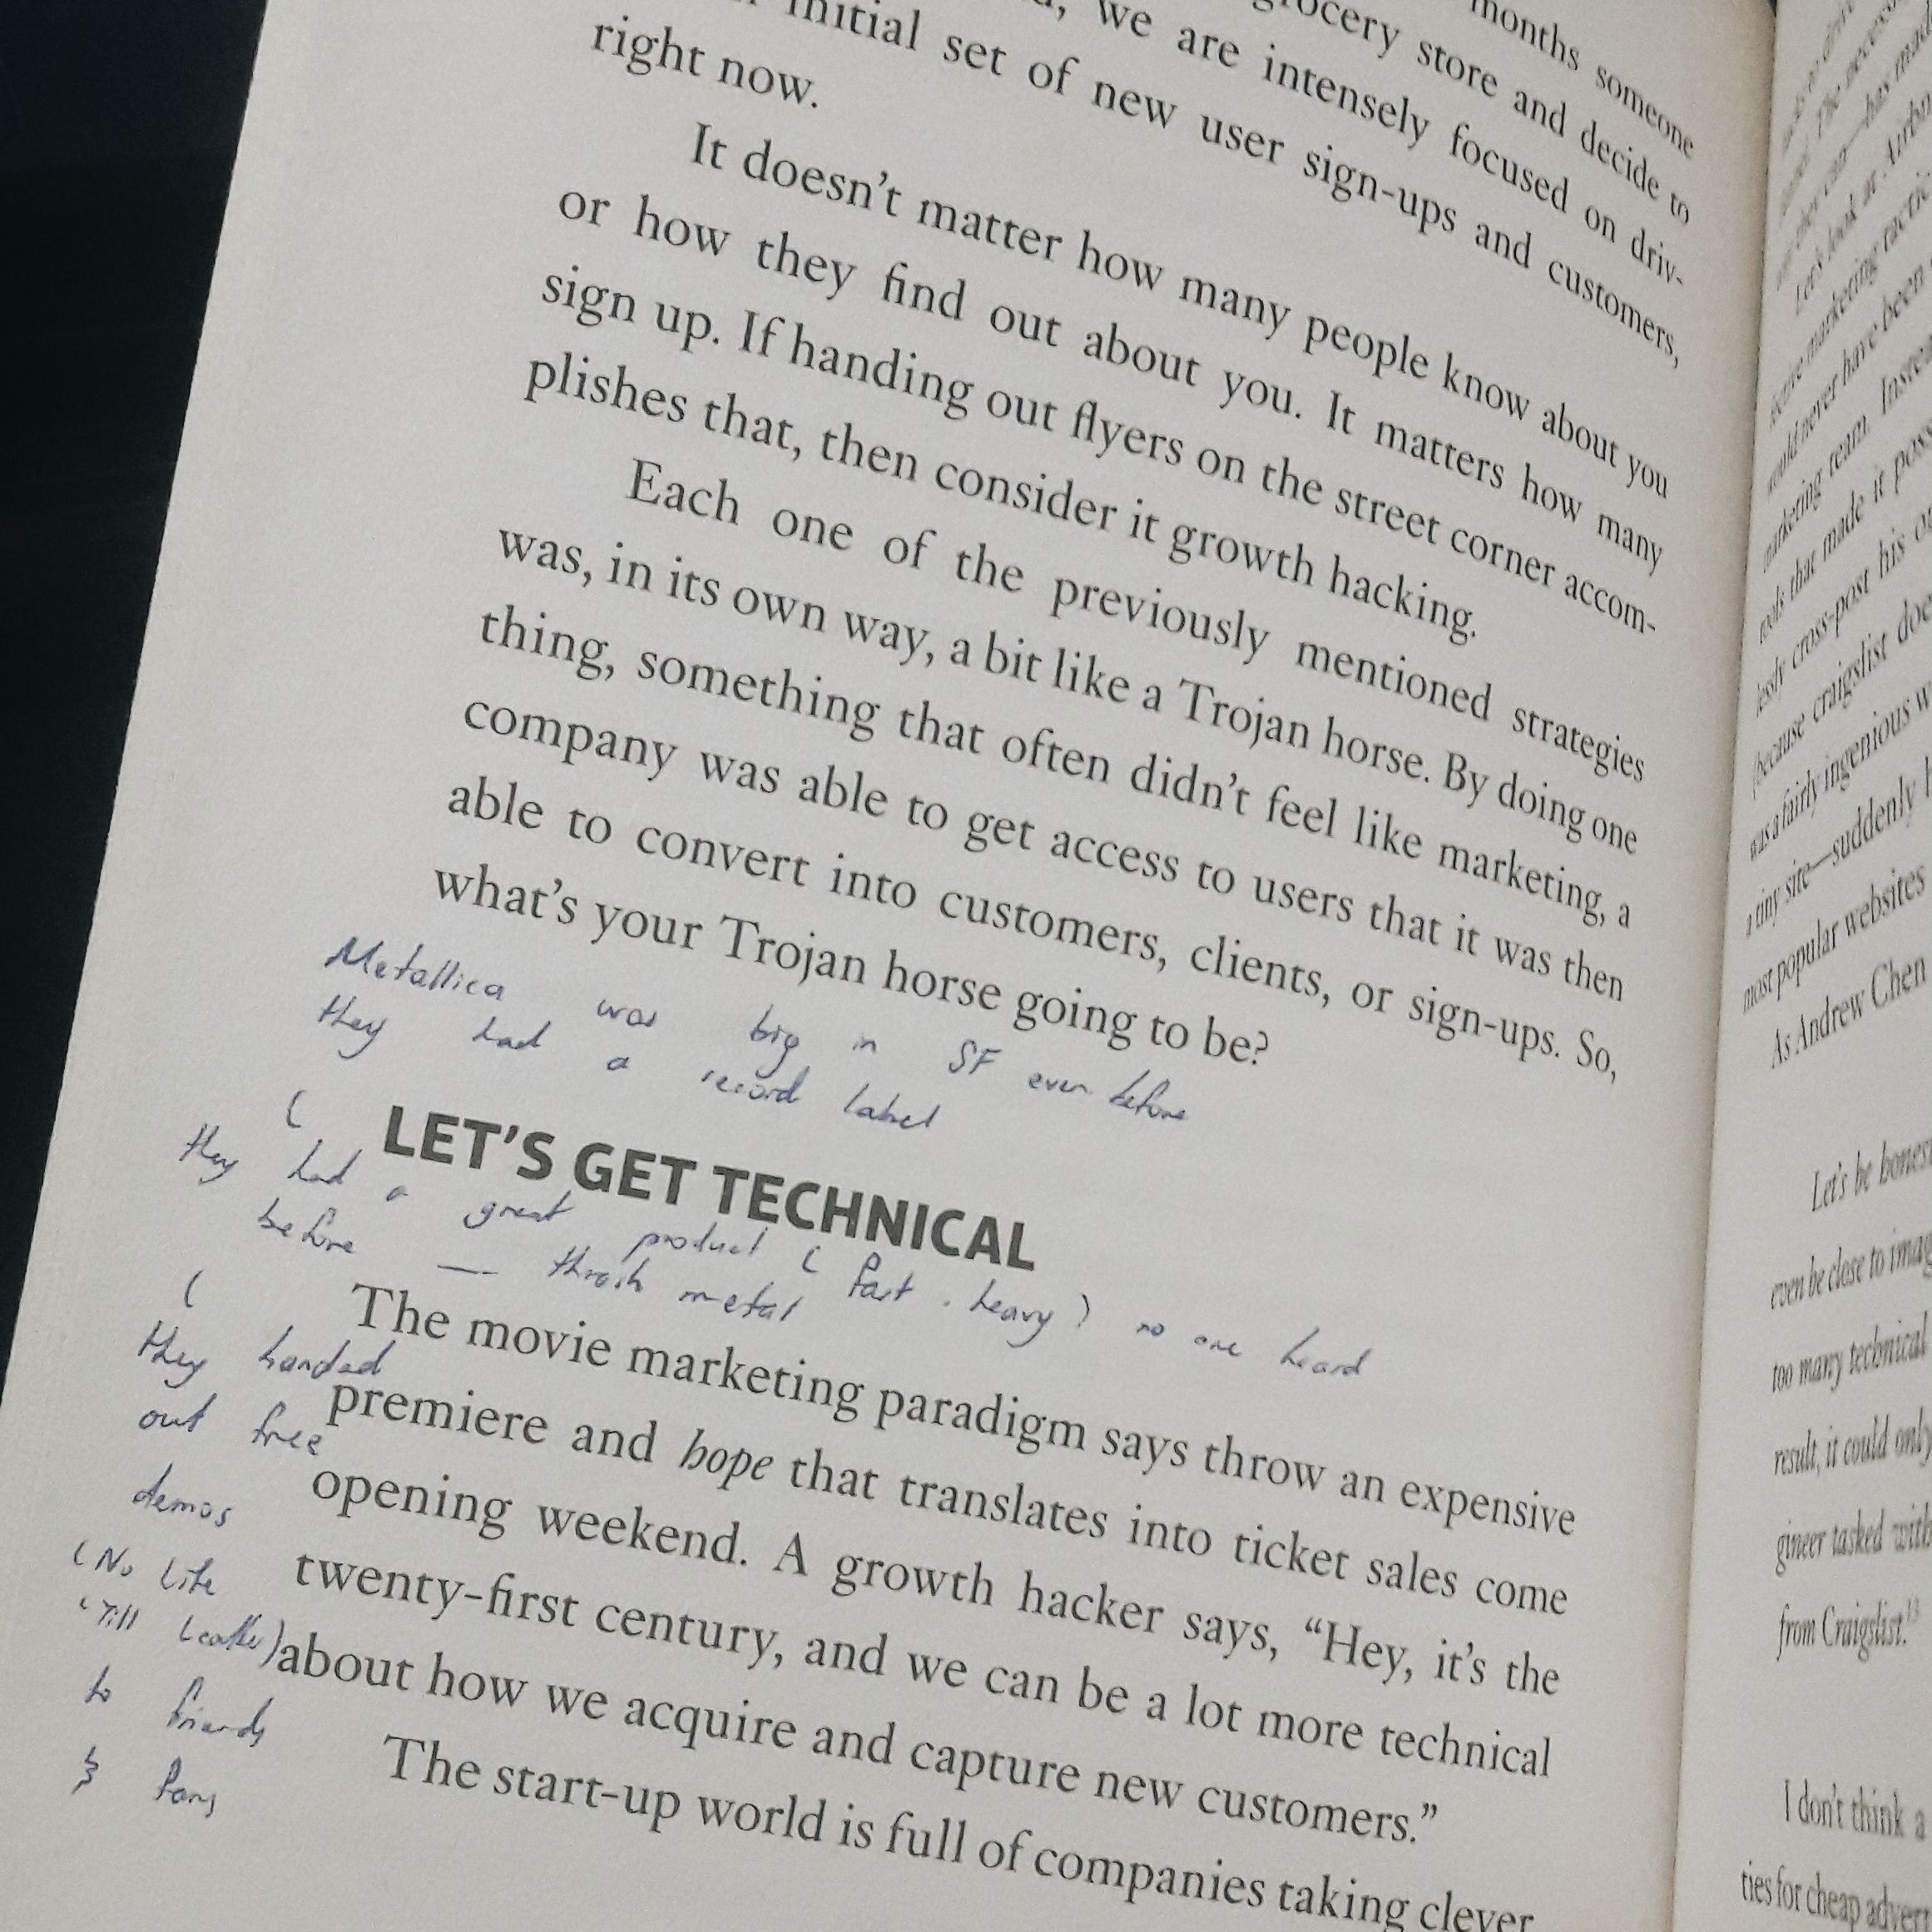 months someone
grocery store and decide to
we are intensely focused on driv-
initial set of new user sign-ups and customers,
right now.
It doesn't matter how many people know about you
or how they find out about you. It matters how many
sign up. If handing out flyers on the street corner accom-
plishes that, then consider it growth hacking.
Each one of the previously mentioned strategies
was, in its own way, a bit like a Trojan horse. By doing one
thing, something that often didn't feel like marketing, a
company was able to get access to users that it was then
able to convert into customers, clients, or sign-ups. So,
what's your Trojan horse going to be?
Metallica was big in SF even before
they had a record label
(
LET'S GET TECHNICAL
they had a great product ( fast, heavy ) no one heard
before — thrash metal
(
they handed
out free
demos
(No Life
'Till Leather)
to friends
& fans
The movie marketing paradigm says throw an expensive
premiere and hope that translates into ticket sales come
opening weekend. A growth hacker says, “Hey, it's the
twenty-first century, and we can be a lot more technical
about how we acquire and capture new customers.”
The start-up world is full of companies taking clever
Let's look at Airbn
ective marketing tactic
would never have been
marketing team. Instea
tools that made it poss
lessly cross-post his or
(because craigslist doe
was a fairly ingenious w
a tiny site—suddenly
most popular websites
As Andrew Chen
Let's be honest
even be close to imag
too many technical
result, it could only
gineer tasked with
from Craigslist.13
I don't think a
ties for cheap advert